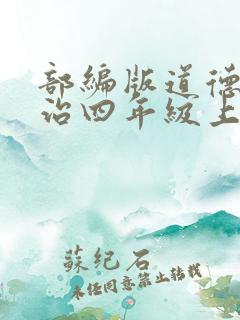 部編版道德
治四年級上
蘇紀石
未經同意禁止轉載